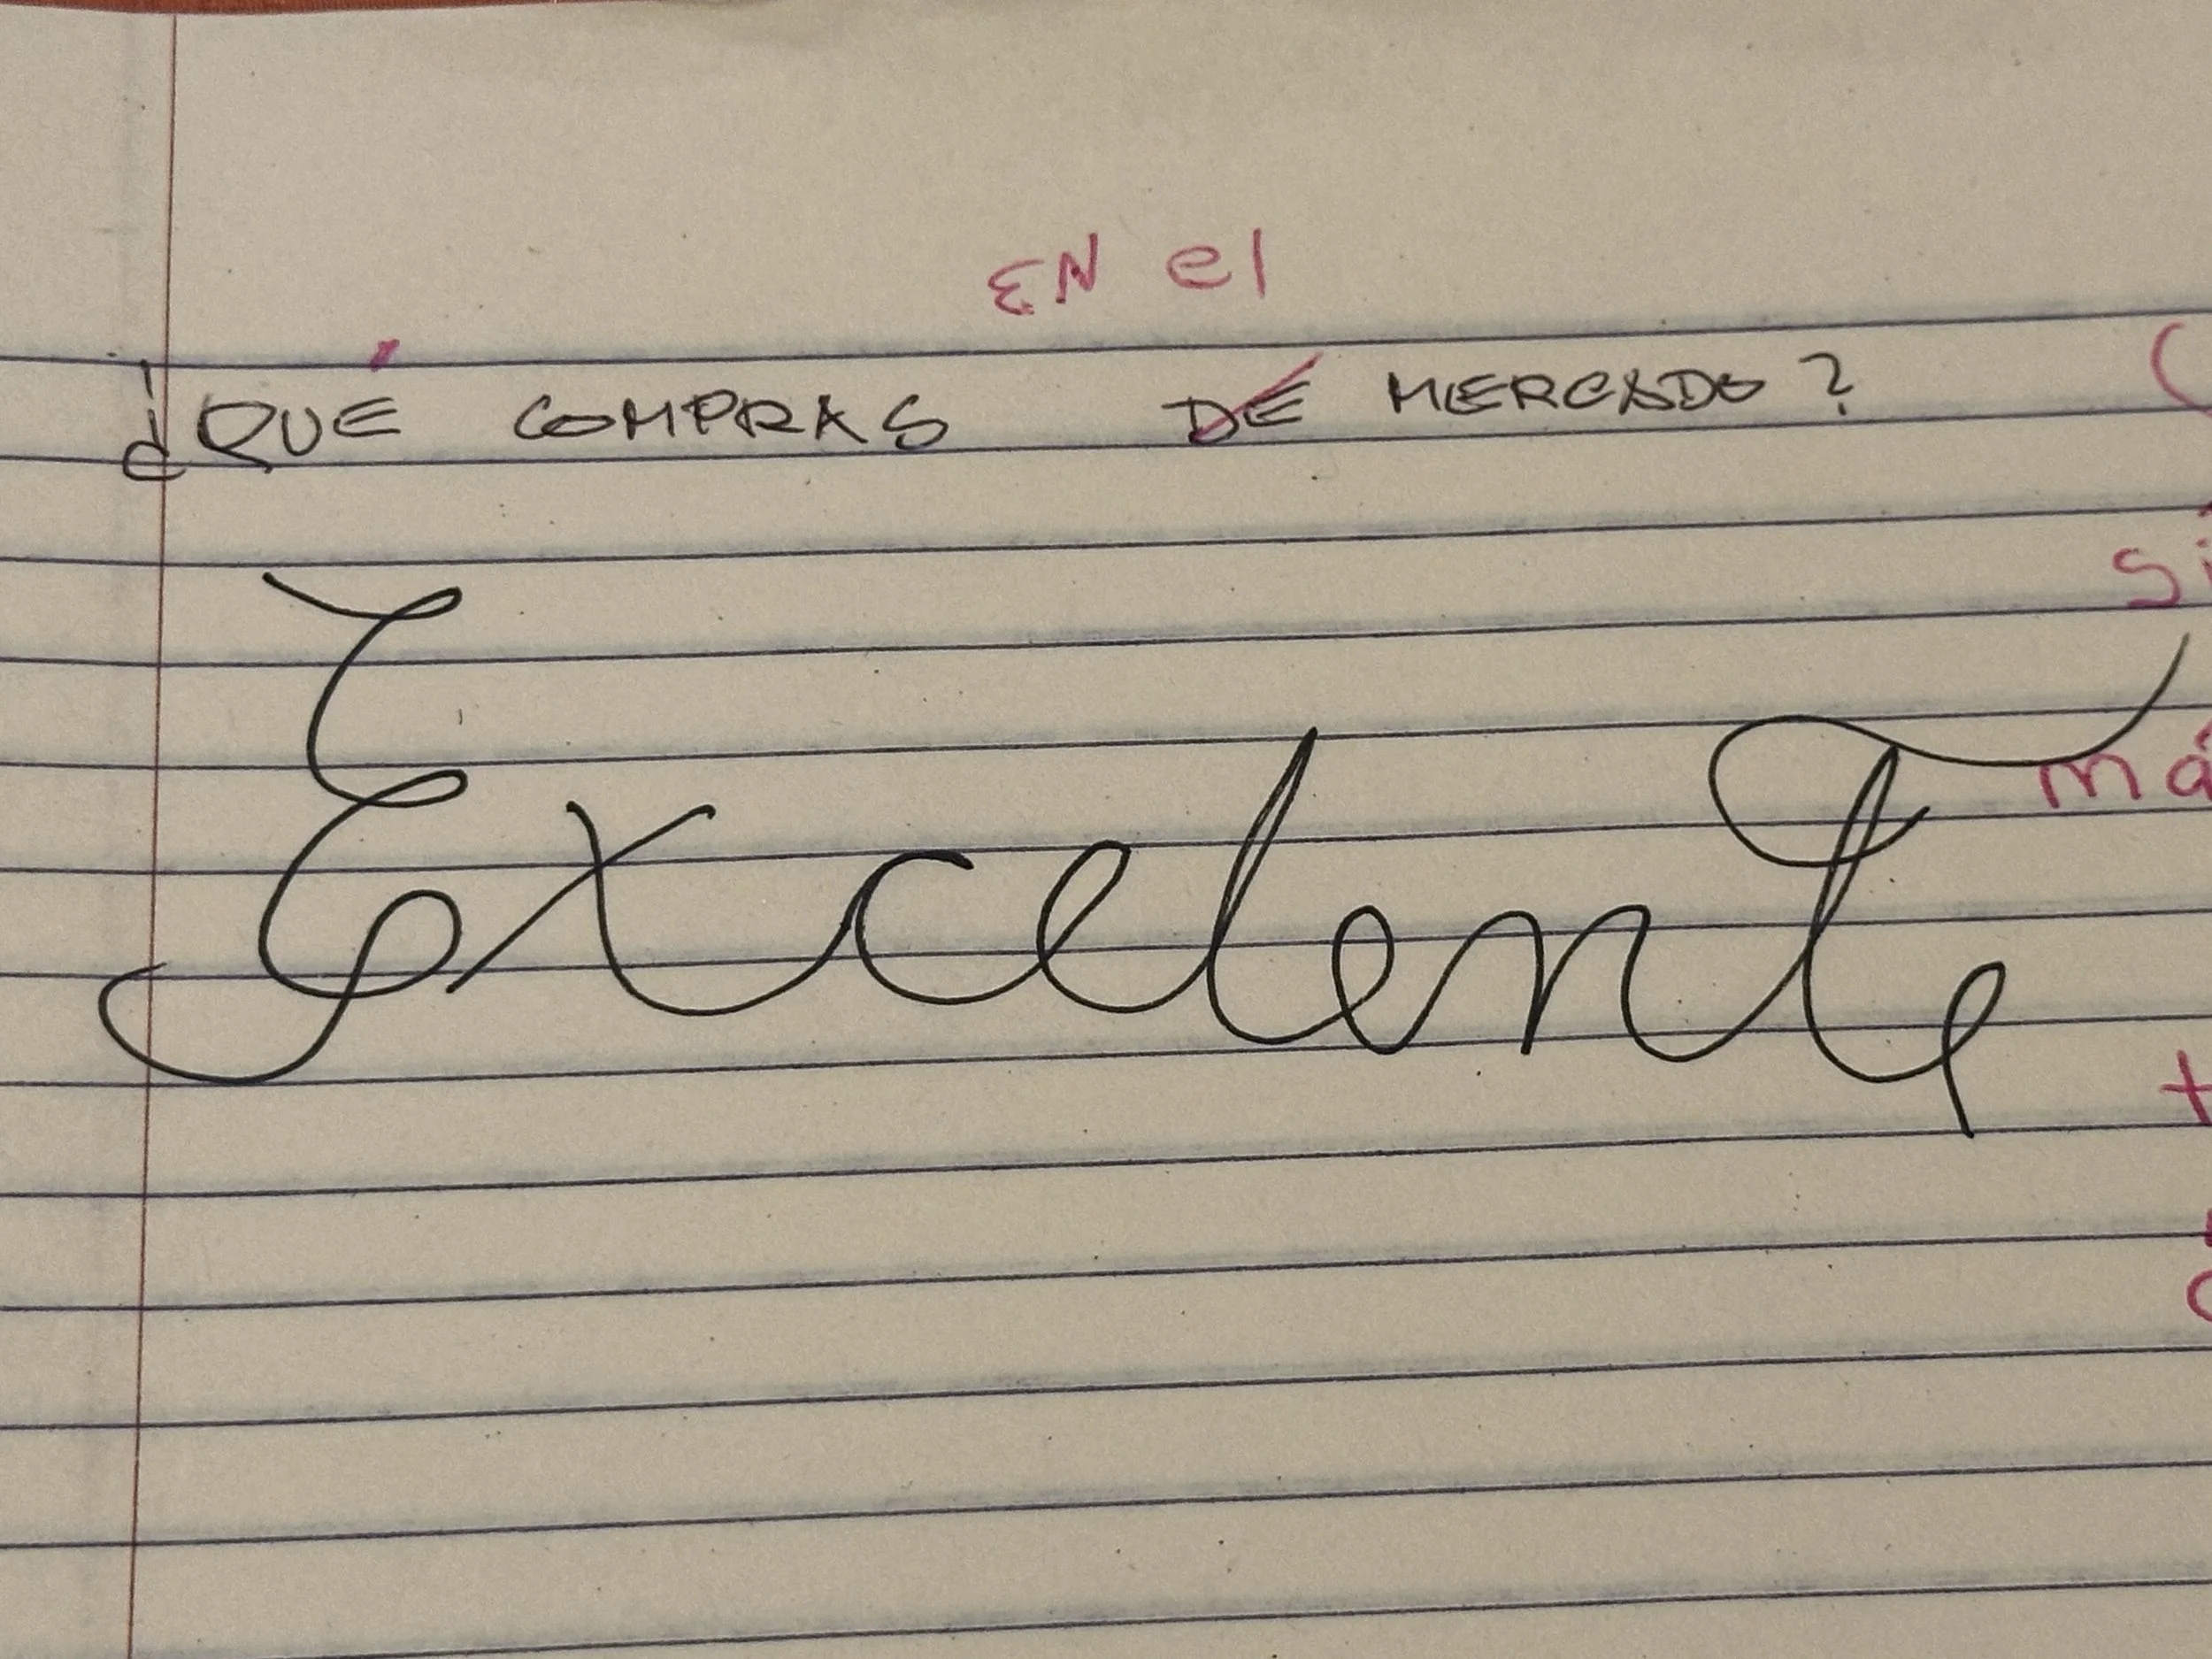 EN el
¿QUÉ COMPRAS DE MERCADO?
Excelente